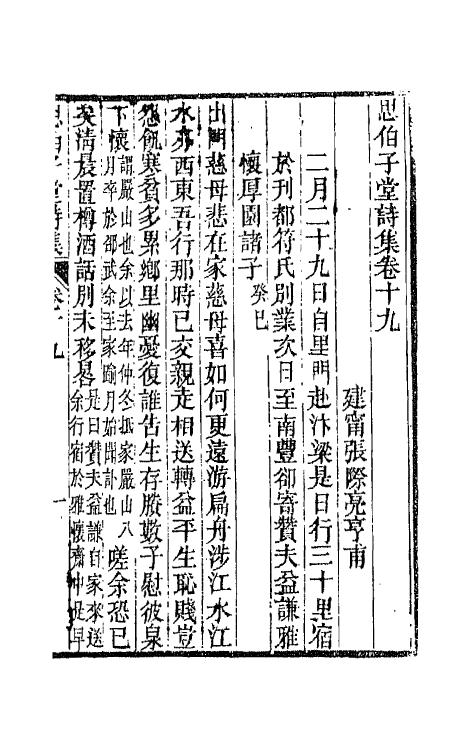 思伯子堂詩集卷十九
建甯張際亮亨甫
二月二十九日自里門赴汴梁是日行三十里宿
於刊都符氏別業次日至南豐卻寄贊夫益謙雅
懷厚園諸子癸巳
出門慈母悲在家慈母喜如何更遠游扁舟涉江水江
水亦西東吾行那時已交親走相送轉益平生恥賤豈
怨飢寒貧多累鄉里幽憂復誰告生存賸數子慰彼泉
下懷謂嚴山也余以去年仲冬抵家嚴山八
月卒於邵武余至家踰月始聞訃也嗟余恐已
矣清晨置樽酒話別未移晷是日贊夫益謙自家來送
余行宿於雅懷齋中是早
思伯子堂詩集 卷十九 一